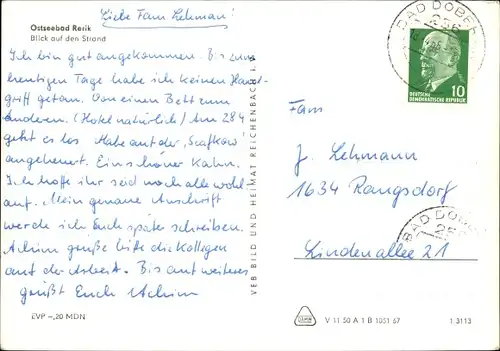 Liebe Fam. Lehmann!
Ostseebad Rerik
Blick auf den Strand
Ich bin gut angekommen. Bis zum
heutigen Tage habe ich keinen Hand-
griff getan. Von einem Bett zum
anderen. (Hotel natürlich) Am 28.4
geht es los. Habe auf der „Saefkow"
angeheuert. Ein schöner Kahn.
Ich hoffe ihr seid noch alle wohl-
auf. Mein genaue Anschrift
werde ich Euch später schreiben.
Achim grüße bitte die Kollegen
auf der Arbeit. Bis auf weiteres
grüßt Euch Achim
EVP –,20 MDN
VEB BILD UND HEIMAT REICHENBACH i. V.
BAD DOBER
256
DEUTSCHE
DEMOKRATISCHE REPUBLIK
10
Fam
J. Lehmann
1634 Rangsdorf
BAD DOBER
Lindenallee 21
V 11 50 A 1 B 1051 67
1 3113